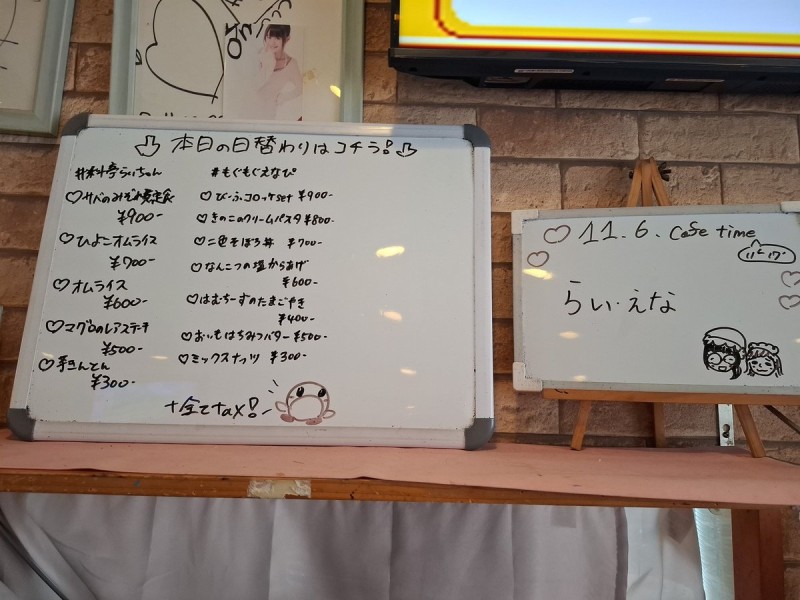 本日の日替わりはコチラ!
#料亭らぃちゃん
♡サバのみぞれ煮定食
¥900-
♡ひよこオムライス
¥700-
♡オムライス
¥600-
♡マグロのレアステーキ
¥500-
¥300-
#もぐもぐえなぴ
♡びーふコロッケset ¥900-
♡きのこのクリームパスタ ¥800-
♡二色そぼろ丼 ¥700-
♡なんこつの塩からあげ
¥600-
♡はむちーずのたまごやき
¥400-
♡おいもはちみつバター ¥500-
♡ミックスナッツ ¥300-
+全てtax!
♡11.6. Cafe time
らぃ・えな